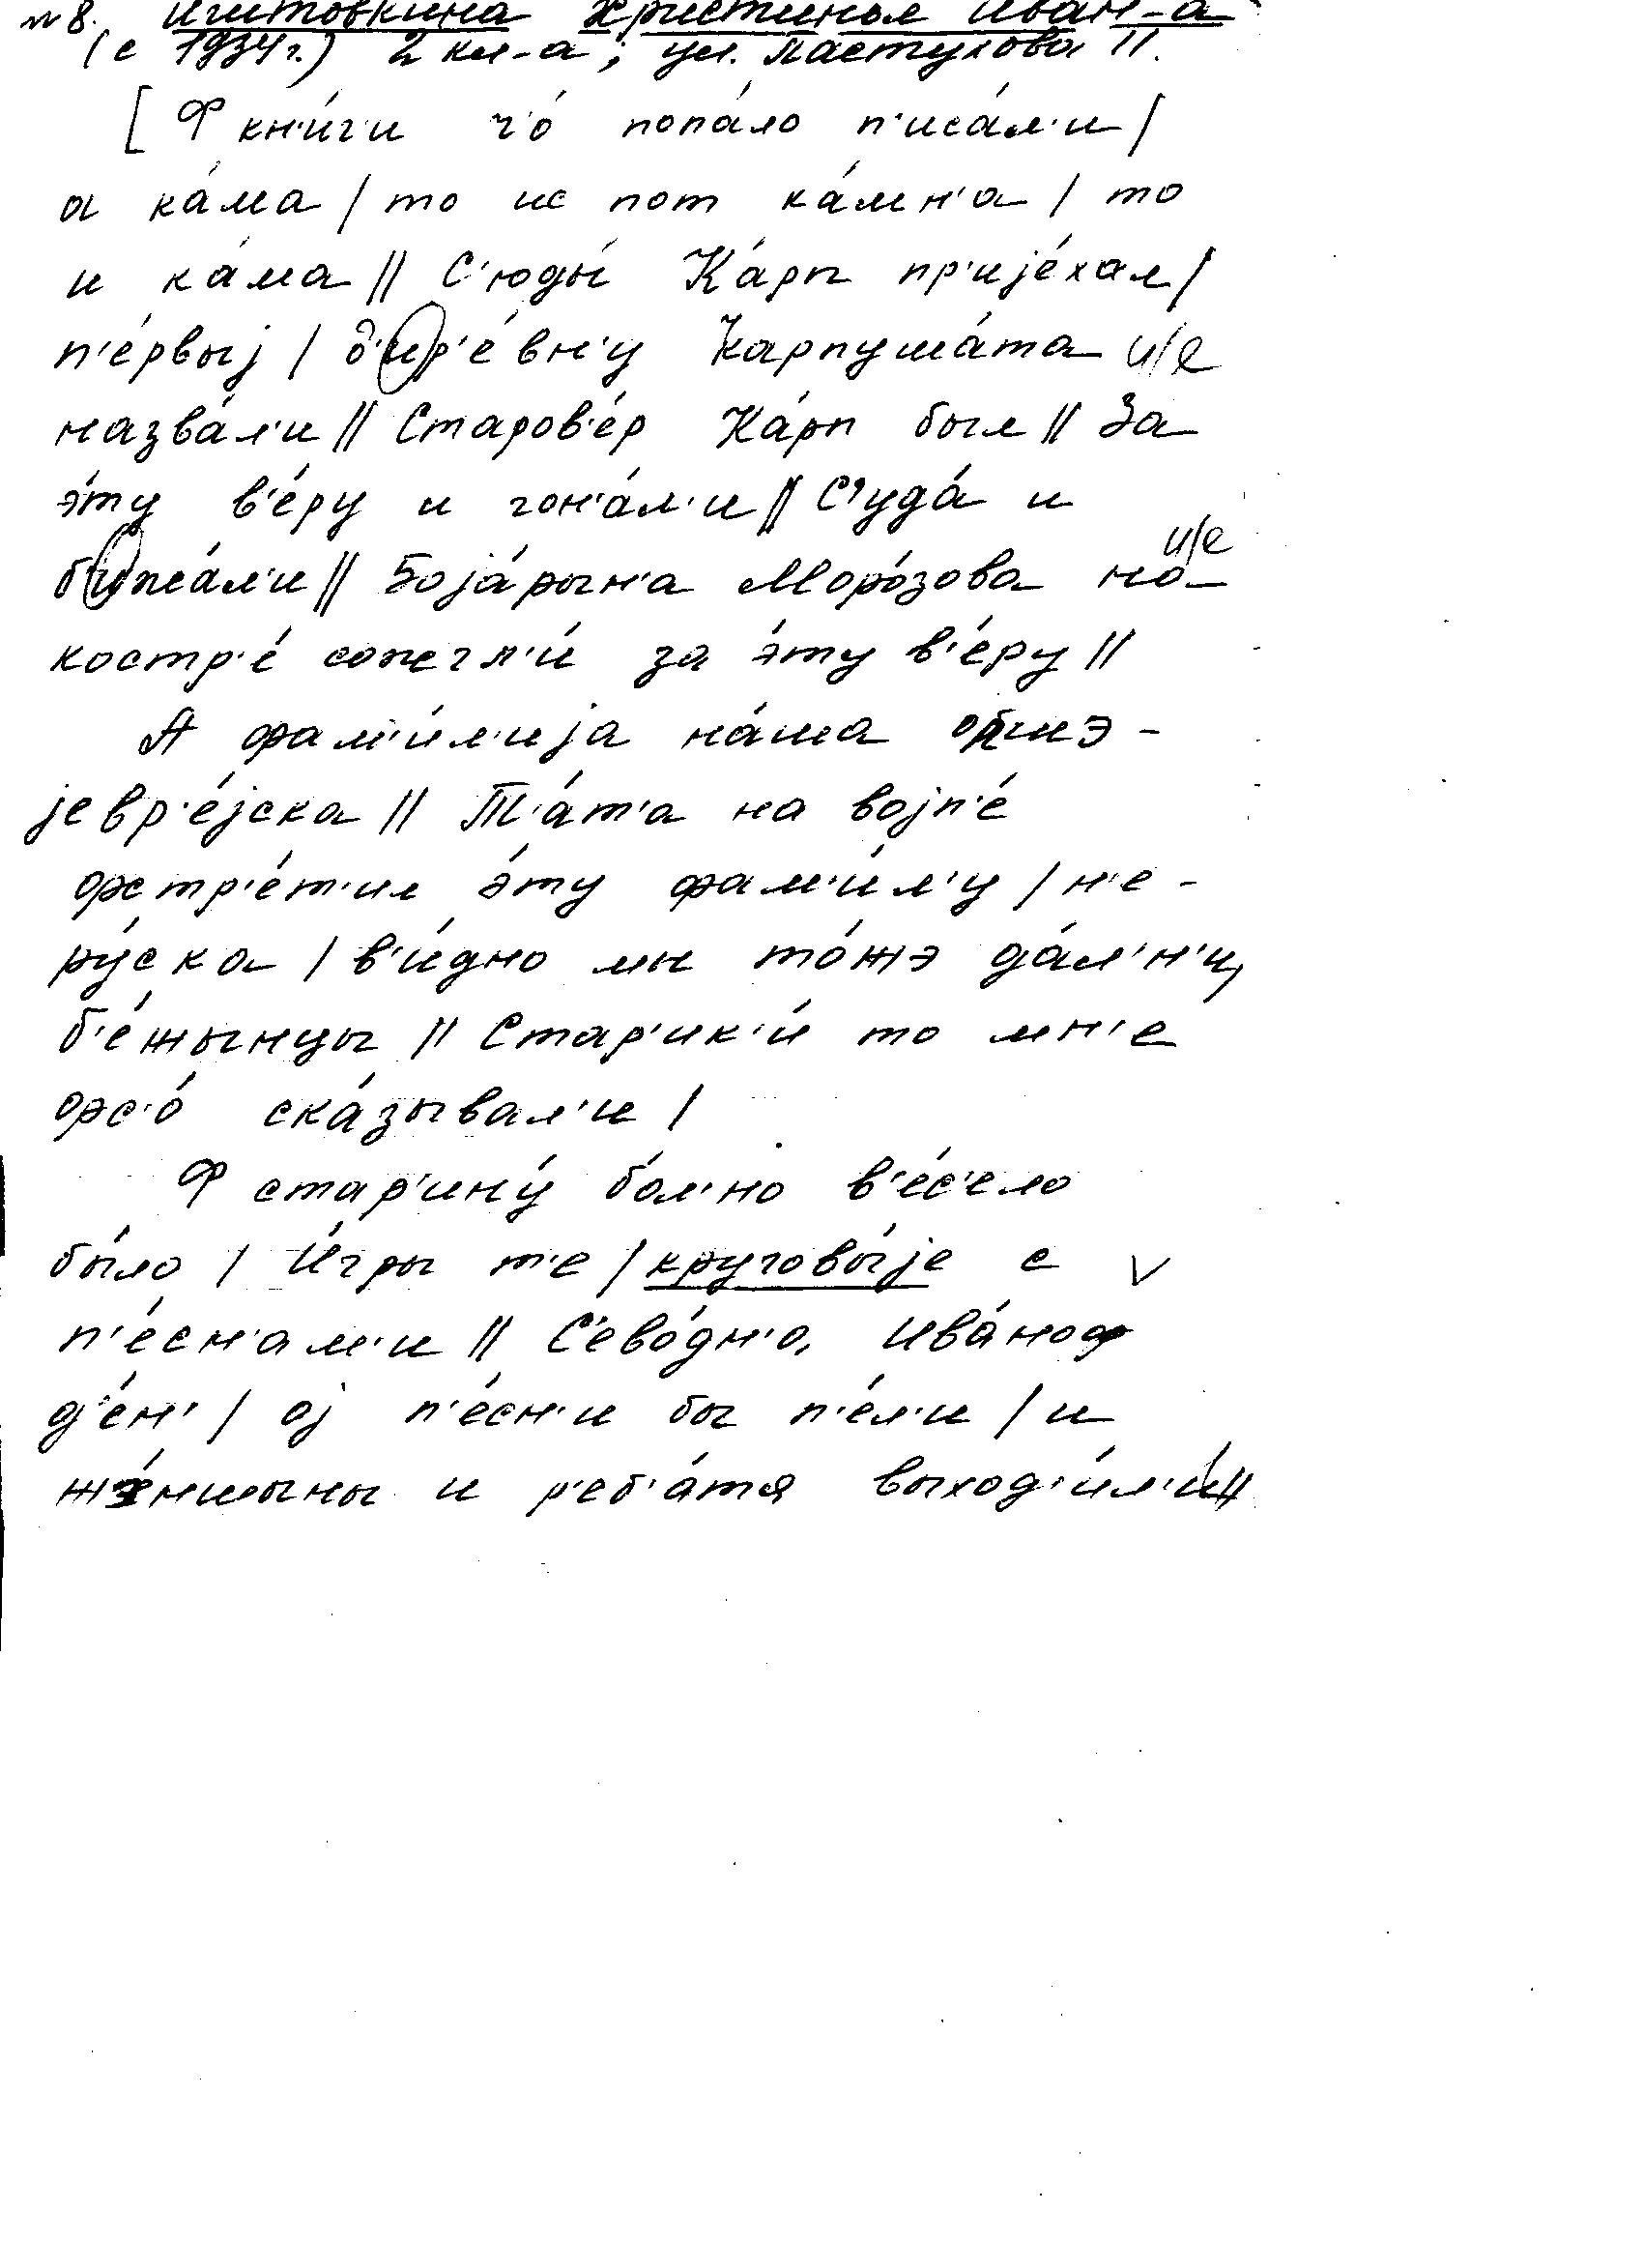 №8. Игитовкина Христинья Иван-а
(с 1934г.) 2 кл-а; ул. Пастухова 11.
[ Ф кн'и́г'и ч'о́ попа́ло п'иса́л'и /
а ка́ма / то ис пот ка́мн'а / то
и ка́ма // С'юды́ Ка́рп пр'ијéхал /
п'éрвыј / д'ир'éвн'у Карпуша́та и/е
назва́л'и // Старов'éр Ка́рп был // За
э́ту в'éру и гон'а́л'и // С'уда́ и
б'ижа́л'и // Боја́рын'а Моро́зова на и/е
костр'é сожегл'и́ за э́ту в'éру //
А фам'и́л'ија на́ша опшэ-
јевр'éјска // Т'а́т'а на војн'é
фстр'éт'ил э́ту фам'и́л'у / н'е-
ру́ска / в'и́дно мы то́жэ да́л'н'и,
б'éжынцы // Стар'ик'и́ то мн'е
фс'о́ ска́зывал'и /
Ф стар'ину́ бо́л'но в'éс'ело
бы́ло / И́гры т'е / круговы́је с V
п'éсн'ам'и // С'ево́дн'а, Ива́ноф
д'éн' / ој п'éсн'и бы п'éл'и / и
жэ́ншыны и р'еб'а́тя выход'и́л'и //